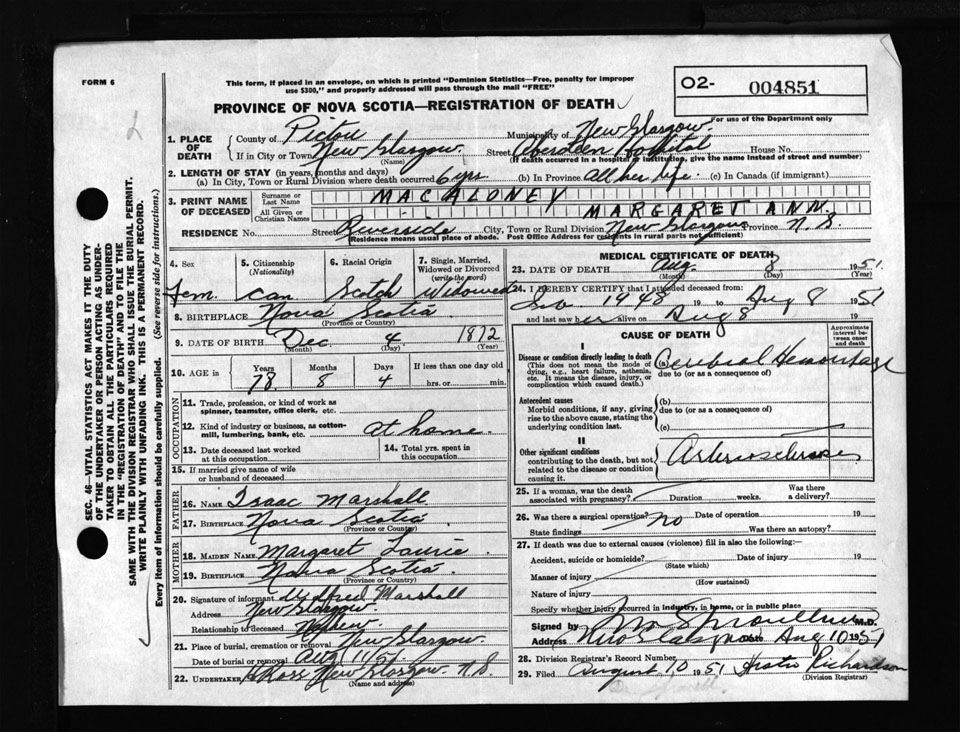 FORM 6
This form, if placed in an envelope, on which is printed "Dominion Statistics—Free, penalty for improper
use $300," and properly addressed will pass through the mail "FREE"
O2- 004851
For use of the Department only
PROVINCE OF NOVA SCOTIA—REGISTRATION OF DEATH
1. PLACE OF DEATH
County of Pictou Municipality of New Glasgow
If in City or Town New Glasgow (Name) Street Aberdeen Hospital House No.
(If death occurred in a hospital or institution, give the name instead of street and number)
2. LENGTH OF STAY (in years, months and days)
(a) In City, Town or Rural Division where death occurred 6 yrs. (b) In Province All her life. (c) In Canada (if immigrant)
3. PRINT NAME OF DECEASED
Surname or Last Name MACALONEY
All Given or Christian Names MARGARET ANN.
RESIDENCE No. Street Riverside City, Town or Rural Division New Glasgow Province N.S.
(Residence means usual place of abode. Post Office Address for residents in rural parts not sufficient)
4. Sex Fem.
5. Citizenship (Nationality) Can
6. Racial Origin Scotch
7. Single, Married, Widowed or Divorced (write the word) Widowed
8. BIRTHPLACE Nova Scotia (Province or Country)
9. DATE OF BIRTH Dec. (Month) 4 (Day) 1872 (Year)
10. AGE in Years 78 Months 8 Days 4 If less than one day old hrs. or min.
OCCUPATION
11. Trade, profession, or kind of work as spinner, teamster, office clerk, etc.
12. Kind of industry or business, as cotton-mill, lumbering, bank, etc. at home.
13. Date deceased last worked at this occupation
14. Total yrs. spent in this occupation
15. If married give name of wife or husband of deceased
FATHER
16. NAME Isaac Marshall
17. BIRTHPLACE Nova Scotia (Province or Country)
MOTHER
18. MAIDEN NAME Margaret
19. BIRTHPLACE Nova Scotia (Province or Country)
20. Signature of informant Marshall
Address New Glasgow
Relationship to deceased Nephew.
21. Place of burial, cremation or removal New Glasgow.
Date of burial or removal Aug 11/51.
22. UNDERTAKER Ross New Glasgow. N.S.
(Name and address)
MEDICAL CERTIFICATE OF DEATH
23. DATE OF DEATH Aug. (Month) 8 (Day) 1951 (Year)
24. I HEREBY CERTIFY that I attended deceased from
1948 19 to Aug 8 1951
and last saw her alive on Aug 8 19
CAUSE OF DEATH
Approximate interval between onset and death
I
Disease or condition directly leading to death
(This does not mean the mode of dying, e.g., heart failure, asthenia, etc. It means the disease, injury, or complication which caused death.)
(a) Cerebral Hemorrhage
due to (or as a consequence of)
Antecedent causes
Morbid conditions, if any, giving rise to the above cause, stating the underlying condition last.
(b)
due to (or as a consequence of)
(c)
II
Other significant conditions
contributing to the death, but not related to the disease or condition causing it.
Arteriosclerosis
25. If a woman, was the death associated with pregnancy? Duration weeks. Was there a delivery?
26. Was there a surgical operation? No Date of operation 19
State findings Was there an autopsy?
27. If death was due to external causes (violence) fill in also the following:
Accident, suicide or homicide? (State which) Date of injury 19
Manner of injury (How sustained)
Nature of injury
Specify whether injury occurred in industry, in home, or in public place
Signed by M.D.
Address New Glasgow Date Aug 10 1951
28. Division Registrar's Record Number
29. Filed August 10 1951 Richardson
(Division Registrar)
SEC. 46 VITAL STATISTICS ACT MAKES IT THE DUTY
OF THE UNDERTAKER OR PERSON ACTING AS UNDER-
TAKER TO OBTAIN ALL THE PARTICULARS REQUIRED
IN THE "REGISTRATION OF DEATH" AND TO FILE THE
SAME WITH THE DIVISION REGISTRAR WHO SHALL ISSUE THE BURIAL PERMIT.
WRITE PLAINLY WITH UNFADING INK. THIS IS A PERMANENT RECORD.
Every item of information should be carefully supplied. (See reverse side for instructions.)